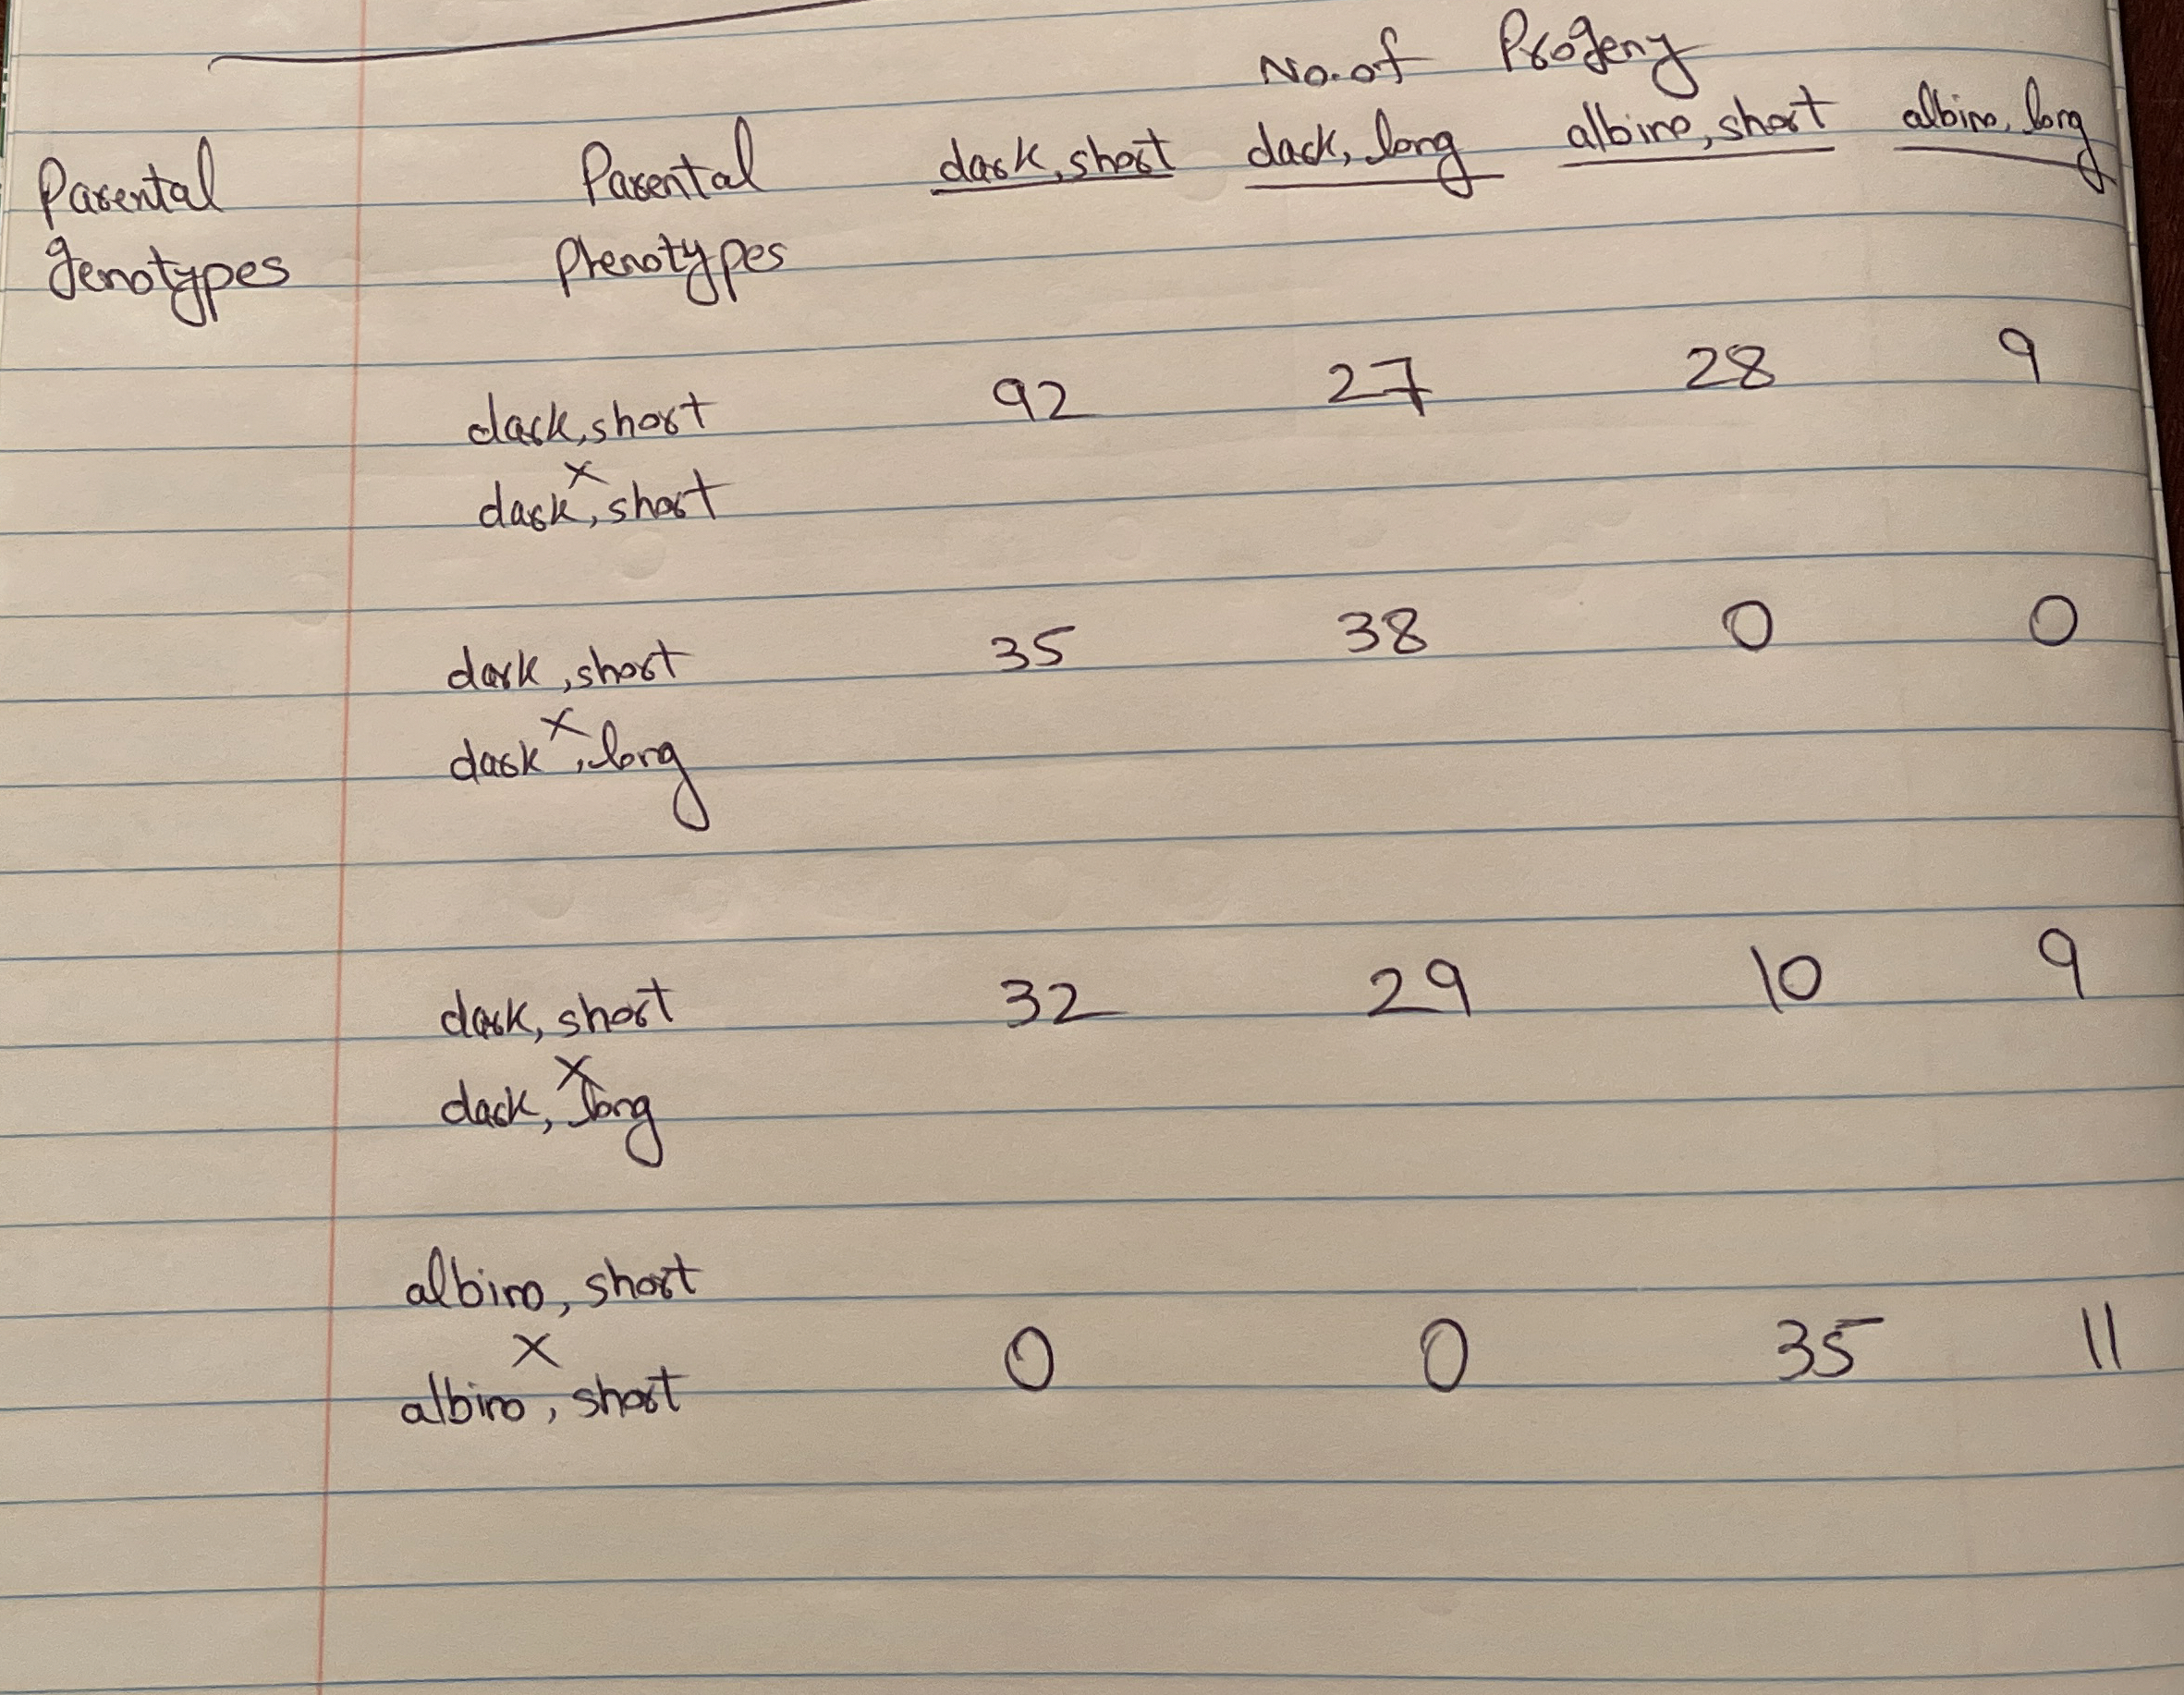 No. of Progeny
Parental genotypes Parental Phenotypes dark, short dark, long albino, short albino, long
dark, short 92 27 28 9
x
dark, short
dark, short 35 38 0 0
x
dark, long
dark, short 32 29 10 9
x
dark, long
albino, short
x 0 0 35 11
albino, short